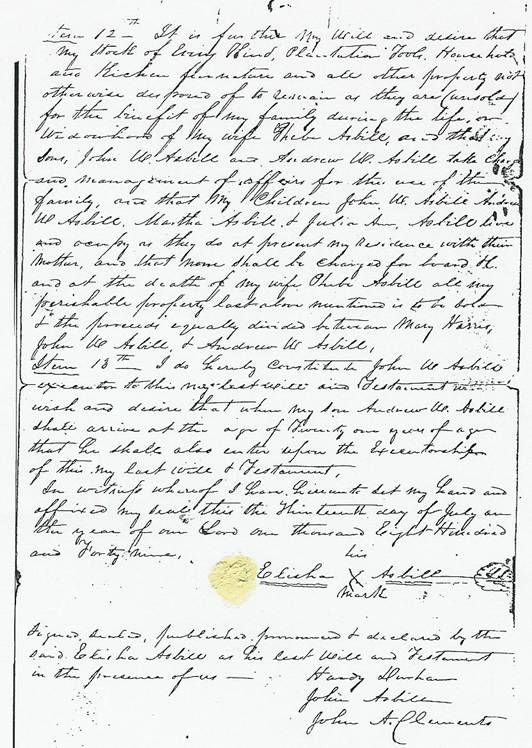 Item 12th It is further my Will and desire that
my Stock of Every Kind, Plantation Tools, Household
and Kichen furnature and all other property not
otherwise disposed of to remain as they are (unsold)
for the benefit of my family during the life, or
Widowhood of my wife Phebe Asbill, and that my
Sons, John W Asbill and Andrew W. Asbill take charge
and management of affairs for the use of the
family, and that my Children John W. Asbill Andrew
W Asbill, Martha Asbill, & Julia Ann, Asbill live
and occupy as they do at present my Residence with their
Mother, and that none shall be charged for board &c.
and at the death of my wife Phebe Asbill all my
perishable property last above mentioned is to be sold
& the proceeds equally divided between Mary Harris,
John W Asbill, & Andrew W Asbill,
Item 13th I do hereby Constitute John W Asbill
executor to this my last will and Testament
wish and desire that when my son Andrew W. Asbill
shall arrive at the age of Twenty one years of age
that he shall also enter upon the Executorship
of this my last will & Testament,
In witness whereof I have hereunto set my hand and
affixed my seal this the Thirteenth day of July in
the year of our Lord one thousand Eight Hundred
and Forty Nine, his
Elisha X Asbill
mark
Signed, sealed, published pronounced & declared by the
said Elisha Asbill as his last Will and Testament
in the presence of us — Hardy Durham
John Asbill
John A. Clements